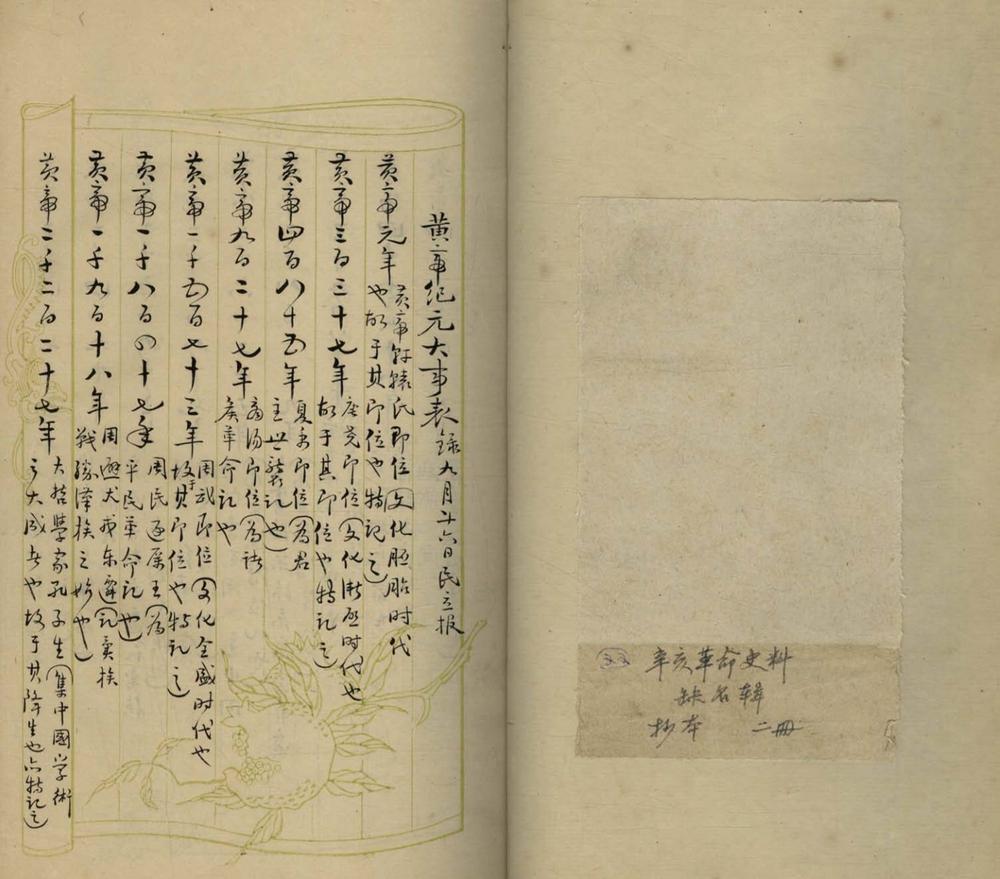 辛亥革命史料
缺名輯
抄本 二冊
黃帝紀元大事表 錄九月廿六日民立报
黃帝元年 黃帝軒轅氏即位(文化胚胎时代
也故于其即位也特記之)
黃帝三百三十七年 唐尧即位(文化漸啟时代也
故于其即位也特記之)
黃帝四百八十五年 夏禹即位(為君
主世襲記也)
黃帝九百二十七年 商汤即位(為諸
侯革命記也
黃帝一千五百七十三年 周武即位(文化全盛时代也
故于其即位也特記之)
黃帝一千八百四十七年 周民逐厲王(為
平民革命記也)
黃帝一千九百十八年 周避犬戎东遷(記異族
戰勝漢族之始也)
黃帝二千二百二十七年 大哲學家孔子生(集中國学術
之大成者也故于其降生也亦特記之)